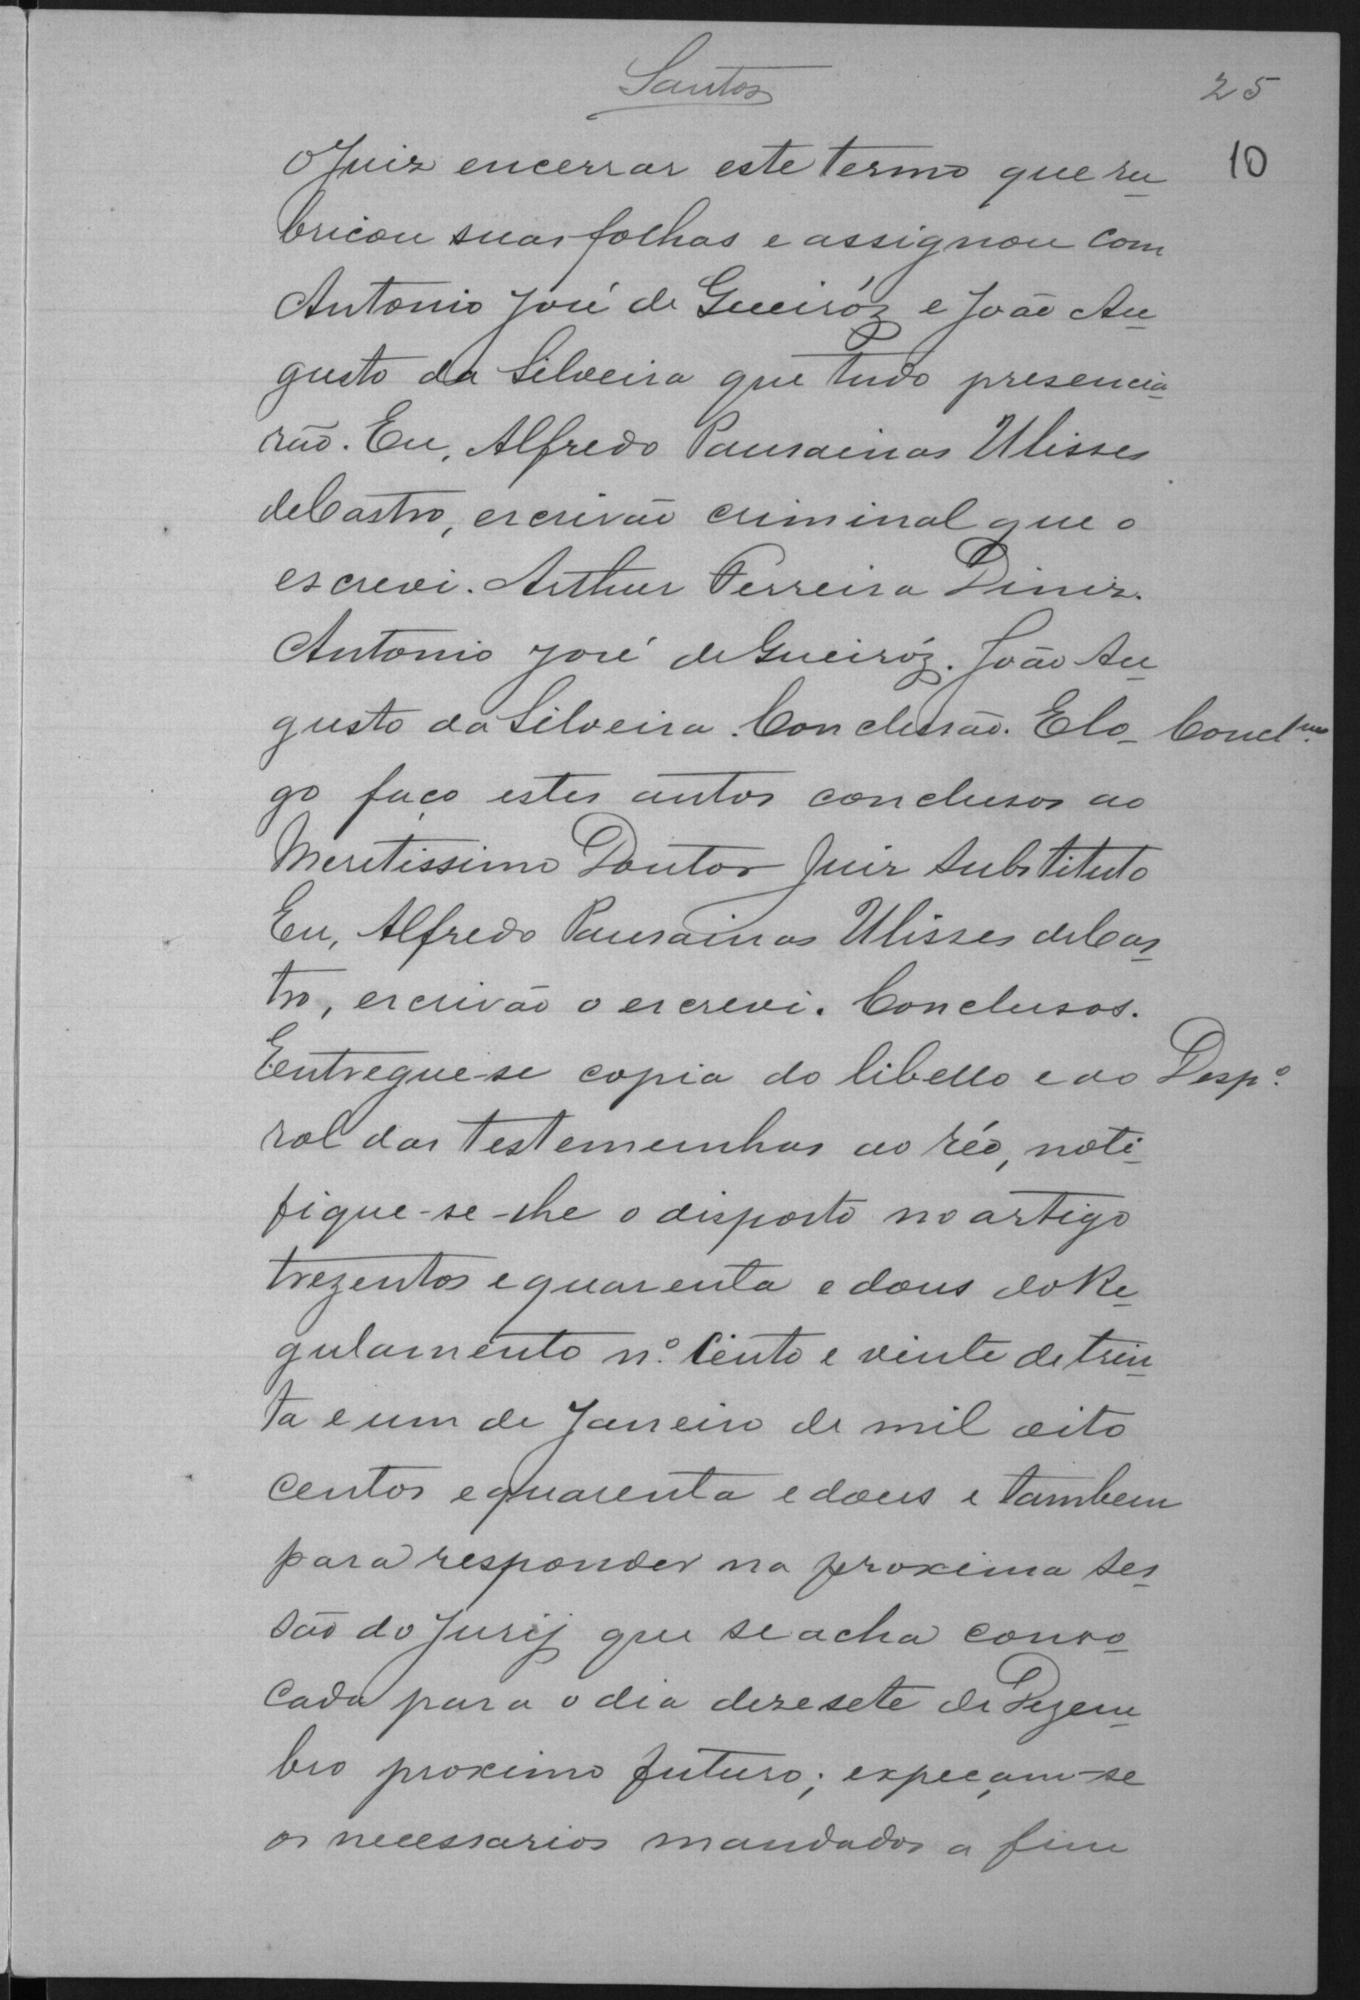 Santos
25
10
O Juiz encerrar este termo que ru
bricou suas folhas e assignou com
Antonio José de Gueiróz e João Au
gusto da Silveira que tudo presencia
rão. Eu, Alfredo Pausainas Ulisses
de Castro, escrivão criminal que o
escrevi. Arthur Ferreira Diniz.
Antonio José de Gueiróz. João Au
gusto da Silveira. Conclusão. E lo_ Concl.
go faço estes autos conclusos ao
Meretissimo Doutor Juiz Substituto
Eu, Alfredo Pausainas Ulisses de Cas
tro, escrivão o escrevi. Conclusos.
Entregue-se copia do libello e do Desp.º
rol das testemunhas ao réo, noti
fique-se-lhe o disposto no artigo
trezentos e quarenta e dous do Re
gulamento n.º Cento e vinte de trin
ta e um de Janeiro de mil oito
centos e quarenta e dous e tambem
para responder na proxima ses
são do Jury que se acha convo
cada para o dia dezesete de Dezem
bro proximo futuro; expeçam-se
os necessarios mandados a fim